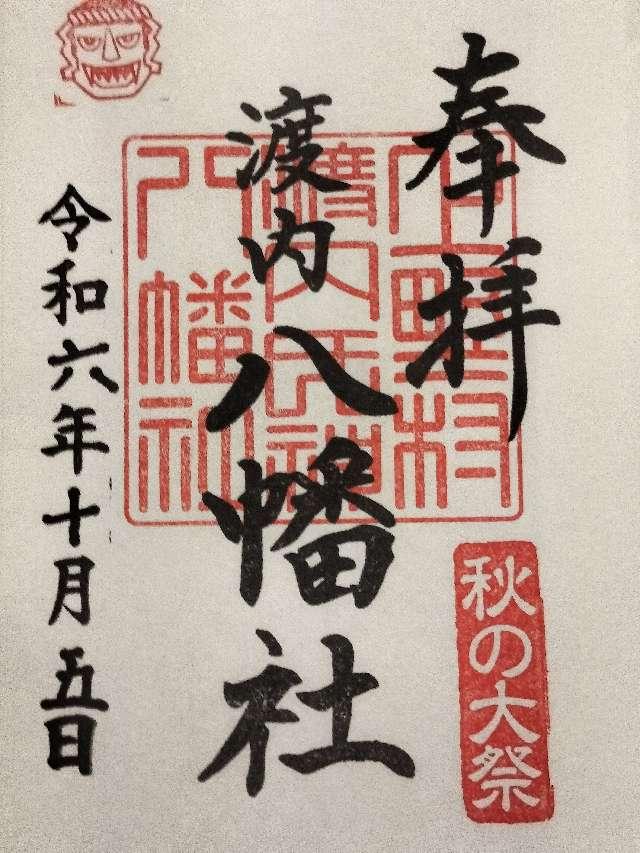 奉拝
秋の大祭
渡内八幡社
令和六年十月五日